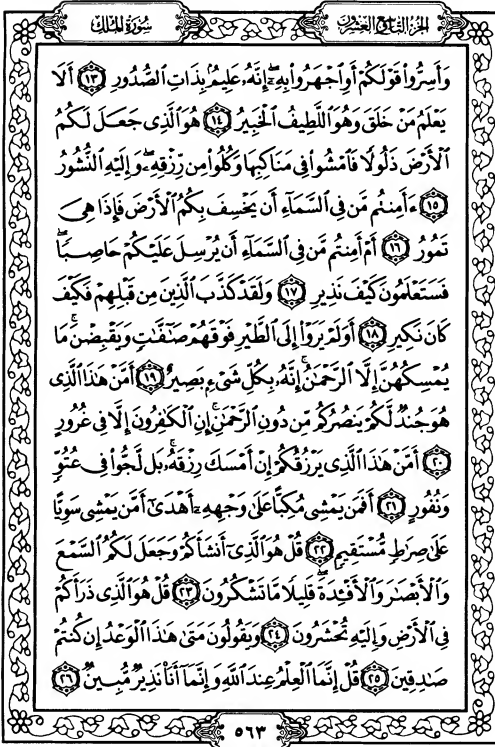 سُورَةُ المُلْكِ
الجُزْءُ التَّاسِعُ وَالعِشْرُونَ
وَأَسِرُّوا۟ قَوْلَكُمْ أَوِ ٱجْهَرُوا۟ بِهِۦٓ ۖ إِنَّهُۥ عَلِيمٌۢ بِذَاتِ ٱلصُّدُورِ ١٣ أَلَا
يَعْلَمُ مَنْ خَلَقَ وَهُوَ ٱللَّطِيفُ ٱلْخَبِيرُ ١٤ هُوَ ٱلَّذِى جَعَلَ لَكُمُ
ٱلْأَرْضَ ذَلُولًا فَٱمْشُوا۟ فِى مَنَاكِبِهَا وَكُلُوا۟ مِن رِّزْقِهِۦ ۖ وَإِلَيْهِ ٱلنُّشُورُ
١٥ ءَأَمِنتُم مَّن فِى ٱلسَّمَآءِ أَن يَخْسِفَ بِكُمُ ٱلْأَرْضَ فَإِذَا هِىَ
تَمُورُ ١٦ أَمْ أَمِنتُم مَّن فِى ٱلسَّمَآءِ أَن يُرْسِلَ عَلَيْكُمْ حَاصِبًا ۖ
فَسَتَعْلَمُونَ كَيْفَ نَذِيرِ ١٧ وَلَقَدْ كَذَّبَ ٱلَّذِينَ مِن قَبْلِهِمْ فَكَيْفَ
كَانَ نَكِيرِ ١٨ أَوَلَمْ يَرَوْا۟ إِلَى ٱلطَّيْرِ فَوْقَهُمْ صَٰٓفَّٰتٍ وَيَقْبِضْنَ ۚ مَا
يُمْسِكُهُنَّ إِلَّا ٱلرَّحْمَٰنُ ۚ إِنَّهُۥ بِكُلِّ شَىْءٍۭ بَصِيرٌ ١٩ أَمَّنْ هَٰذَا ٱلَّذِى
هُوَ جُندٌ لَّكُمْ يَنصُرُكُم مِّن دُونِ ٱلرَّحْمَٰنِ ۚ إِنِ ٱلْكَٰفِرُونَ إِلَّا فِى غُرُورٍ
٢٠ أَمَّنْ هَٰذَا ٱلَّذِى يَرْزُقُكُمْ إِنْ أَمْسَكَ رِزْقَهُۥ ۚ بَل لَّجُّوا۟ فِى عُتُوٍّ
وَنُفُورٍ ٢١ أَفَمَن يَمْشِى مُكِبًّا عَلَىٰ وَجْهِهِۦٓ أَهْدَىٰٓ أَمَّن يَمْشِى سَوِيًّا
عَلَىٰ صِرَٰطٍ مُّسْتَقِيمٍ ٢٢ قُلْ هُوَ ٱلَّذِىٓ أَنشَأَكُمْ وَجَعَلَ لَكُمُ ٱلسَّمْعَ
وَٱلْأَبْصَٰرَ وَٱلْأَفْـِٔدَةَ ۖ قَلِيلًا مَّا تَشْكُرُونَ ٢٣ قُلْ هُوَ ٱلَّذِى ذَرَأَكُمْ
فِى ٱلْأَرْضِ وَإِلَيْهِ تُحْشَرُونَ ٢٤ وَيَقُولُونَ مَتَىٰ هَٰذَا ٱلْوَعْدُ إِن كُنتُمْ
صَٰدِقِينَ ٢٥ قُلْ إِنَّمَا ٱلْعِلْمُ عِندَ ٱللَّهِ وَإِنَّمَآ أَنَا۠ نَذِيرٌ مُّبِينٌ ٢٦
٥٦٣